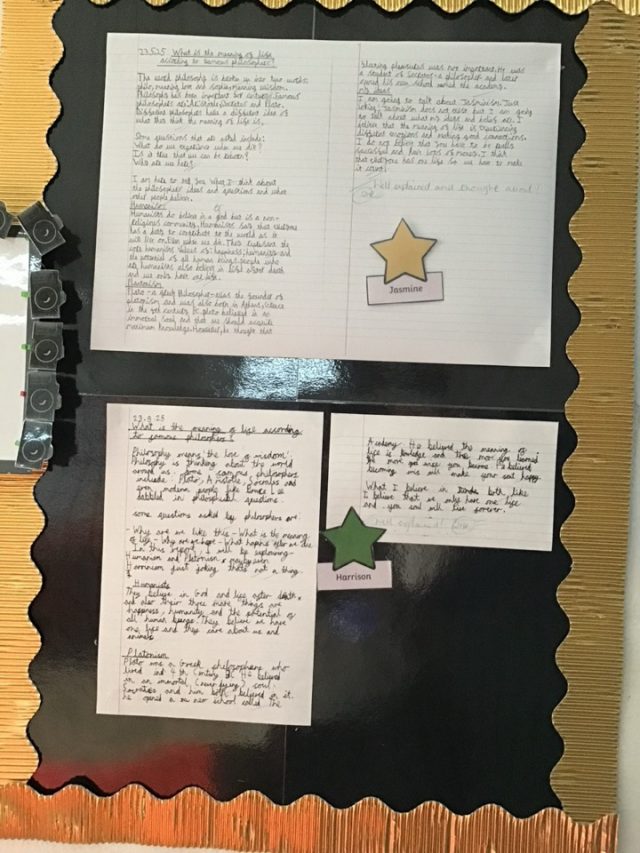 23.5.25 What is the meaning of life
according to famous philosophers?
The word philosophy is broken up into two words:
philo, meaning love and sophia, meaning wisdom.
Philosophy has been important for centuries. Famous
philosophers are: Aristotle, Socrates and Plato.
Different philosophers have a different idea of
what they think the meaning of life is.
Some questions that are asked include:
What do we experience when we die?
Is it true that we can be reborn?
Who are we here?
I am here to tell you what I think about
the philosophers ideas and questions and what
other people believe.
Humanism
Humanists do believe in a god but is a non-
religious community. Humanists say that
has a duty to contribute to the world as it
will live on when we die. This
humanist values of: happiness, humanism and
the potential of all human beings. people who
are humanists also believe in life after death
and we only have one life.
Platonism
Plato - a Greek Philosopher - was the founder of
platonism and was born in Athens, Greece
in the 4th century BC. plato believed in an
immortal soul and that we should acquire
maximum knowledge. However, he thought that
sharing pleasures was not important. He was
a student of Socrates - a philosopher and later
opened his own school named the academy.
my ideas
I am going to talk about Jasminism. Just
joking, Jasminism does not exist but I am going
to talk about what my ideas and beliefs are. I
believe that the meaning of life is experiencing
different emotions and making good connections.
I do not believe that you have to be really
successful and have lots of money. I think
that everyone has one life so we have to make
it count!
Well explained and thought about!
Jasmine
23.9.25
What is the meaning of life according
to famous philosophers?
Philosophy means 'the love of wisdom'.
Philosophy is thinking about the world
around us. Some famous philosophers
include: Plato, Aristotle, Socrates and
even modern people like Bruce Lee
dabbled in philosophical questions.
some questions asked by philosophers are:
- Why are we like this - What is the meaning
of life - Why are we here - What happens after we die
In this report, I will be explaining -
Humanism and Platonism + maybe even
Harrinism just joking thats not a thing.
Humanists
They believe in God and life after death,
and also their three main things are
happiness, humanity and the potential of
all human beings. They believe we have
one life and they care about us and
animals
Platonism
Plato was a Greek philosopher who
lived in 4th Century BC. He believed
in an immortal (never dying) soul.
Socrates and him both believed in it.
he opened a new school called The
Academy. He believed the meaning of
life is knowledge and the more you learned
the more wise you become. He believed
becoming wise will make your soul happy.
What I believe in kinda both like
I believe that we only have one life
and you soul will live forever.
Well explained!
Harrison